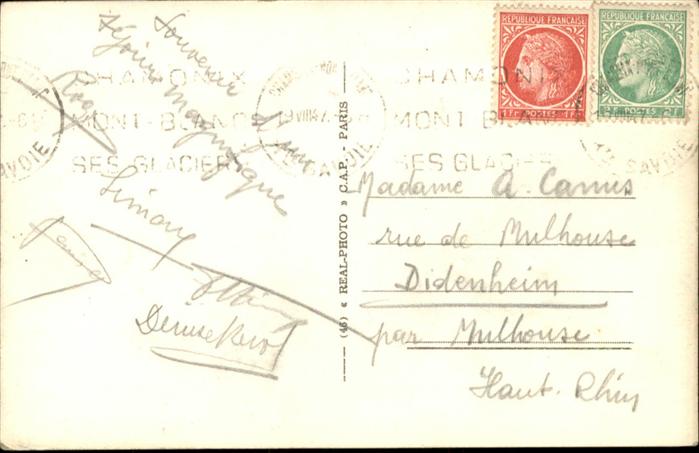 Souvenir
d'un
séjour magnifique
Simony
Denise
(46) « REAL-PHOTO » C.A.P. - PARIS
CHAMONIX
MONT-BLANC
SES GLACIERS
SAVOIE
CHAMONIX
MONT BLANC
SES GLACIERS
SAVOIE
REPUBLIQUE FRANÇAISE
1F POSTES 1F
REPUBLIQUE FRANÇAISE
POSTES
Madame A. Camus
rue de Mulhouse
Didenheim
par Mulhouse
Haut-Rhin